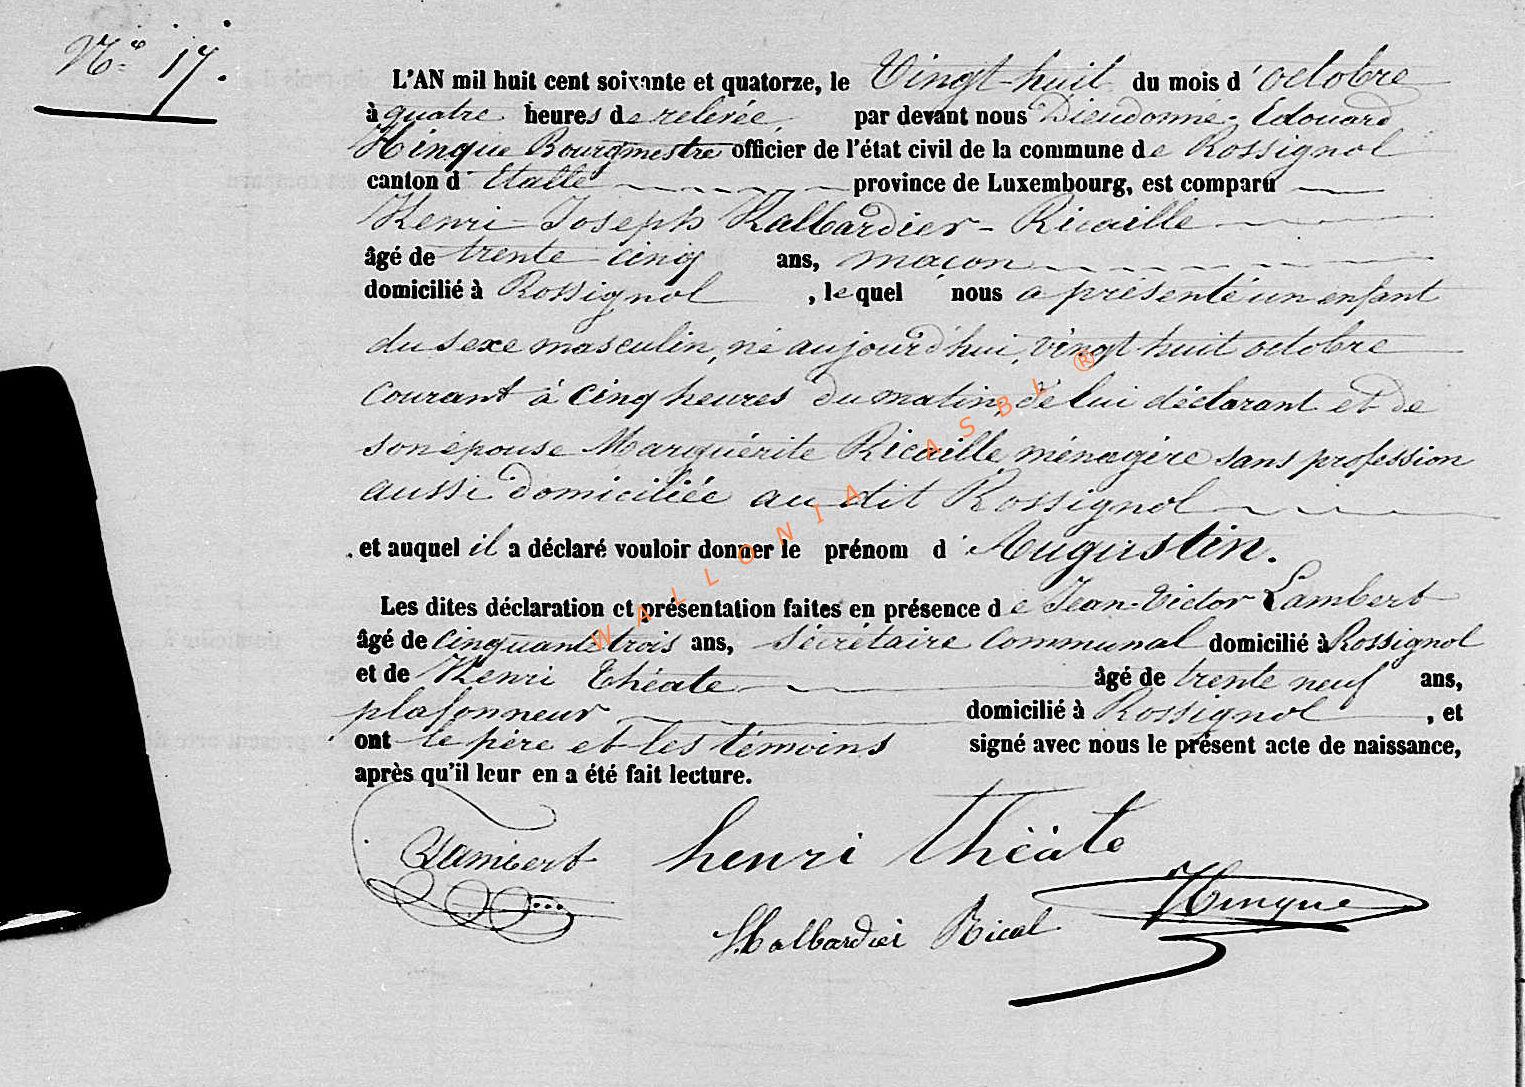 N° 17.
L'AN mil huit cent soixante et quatorze, le Vingt-huit du mois d'octobre
à quatre heures de relevée par devant nous Dieudonné-Edouard
Hinque Bourgmestre officier de l'état civil de la commune de Rossignol
canton d'Etalle province de Luxembourg, est comparu
Henri-Joseph Halbardier-Ricaille
âgé de trente cinq ans, maçon
domicilié à Rossignol, lequel nous a présenté un enfant
du sexe masculin, né aujourd'hui, vingt huit octobre
courant à cinq heures du matin, de lui déclarant et de
son épouse Marguérite Ricaille ménagère sans profession
aussi domiciliée au dit Rossignol
et auquel il a déclaré vouloir donner le prénom d'Augustin.
Les dites déclaration et présentation faites en présence de Jean-Victor Lambert
âgé de cinquante trois ans, sécrétaire communal domicilié à Rossignol
et de Henri Théate âgé de trente neuf ans,
plafonneur domicilié à Rossignol, et
ont le père et les témoins signé avec nous le présent acte de naissance,
après qu'il leur en a été fait lecture.
Lambert henri Théate
Halbardier Rical Hinque
WALLONIA ASBL ®